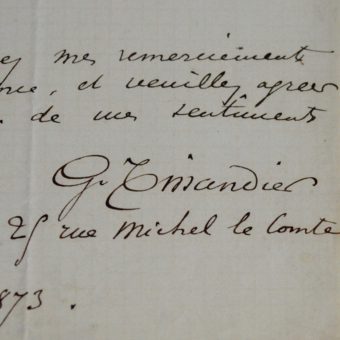 ey mes remerciements
me, et veuillez agreer
. de mes sentiments
G. Tissandier
25 rue Michel le Comte
1873 .